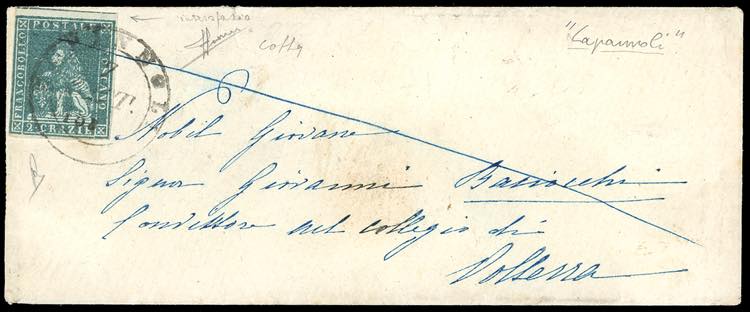 FRANCOBOLLO POSTALE TOSCANO
2 CRAZIE
interspazio
"Capannoli"
Nobil Giovane
Signor Giovanni Baciocchi
Convittore nel collegio di
Volterra